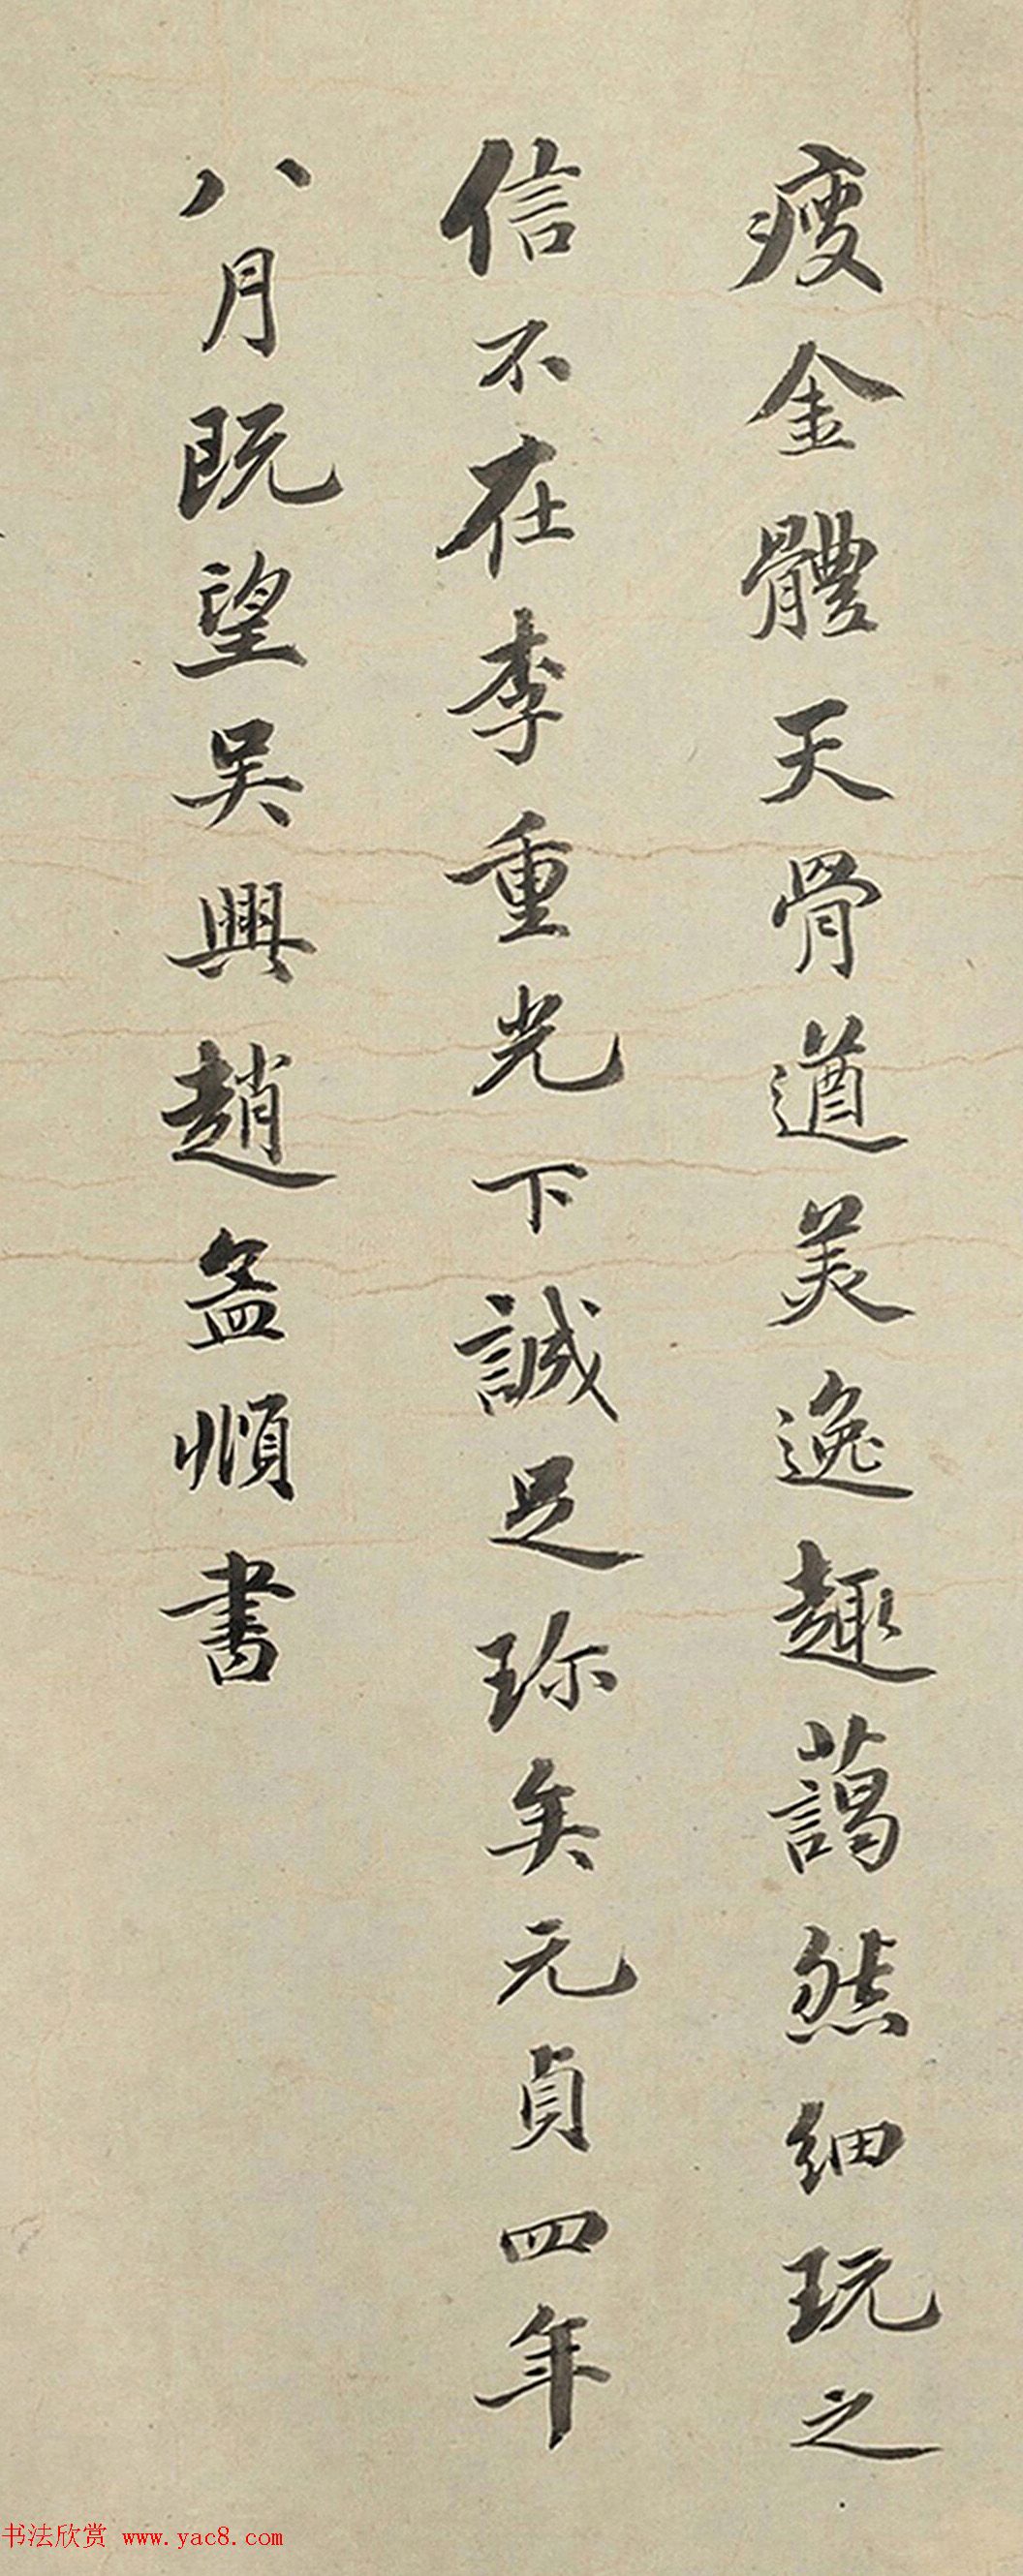 瘦金體天骨遒美逸趣藹然細玩之
信不在李重光下誠足珎矣元貞四年
八月既望吳興趙孟順書
书法欣赏 www.yac8.com